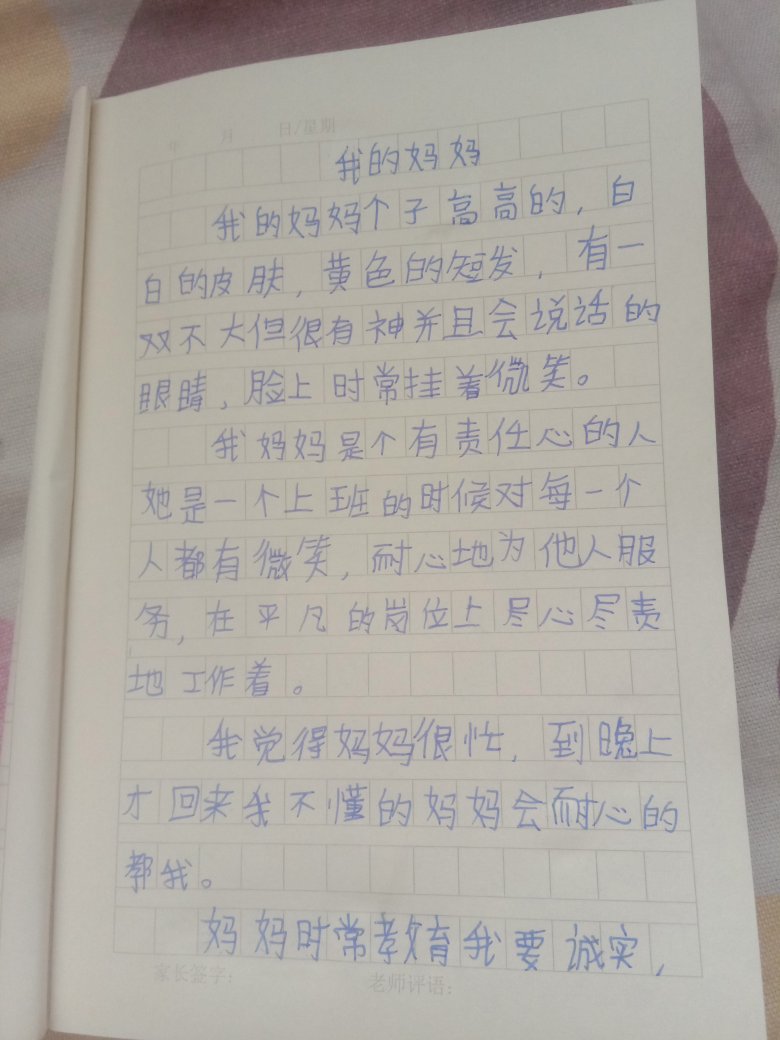 年 月 日/星期
我的妈妈
我的妈妈个子高高的，白
白的皮肤，黄色的短发，有一
双不大但很有神并且会说话的
眼睛，脸上时常挂着微笑。
我妈妈是个有责任心的人
她是一个上班的时候对每一个
人都有微笑，耐心地为他人服
务，在平凡的岗位上尽心尽责
地工作着。
我觉得妈妈很忙，到晚上
才回来我不懂的妈妈会耐心的
教我。
妈妈时常教育我要诚实，
家长签字： 老师评语：